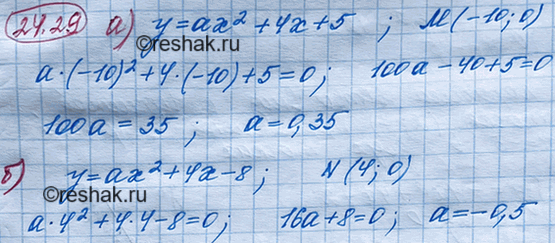 24.29 а) y=ax²+4x+5 ; M(-10; 0)
©reshak.ru
a·(-10)²+4·(-10)+5=0; 100a-40+5=0
100a=35; a=0,35
б) y=ax²+4x-8; N(4; 0)
©reshak.ru
a·4²+4·4-8=0; 16a+8=0; a=-0,5